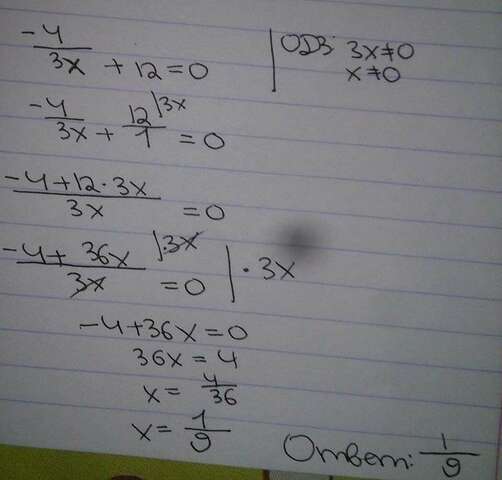 -4/3x + 12 = 0
ОДЗ: 3x≠0
x≠0
-4/3x + 12/1 |3x = 0
-4+12·3x/3x = 0
-4+36x/3x |·3x = 0 | ·3x
-4+36x=0
36x=4
x= 4/36
x= 1/9
Ответ: 1/9